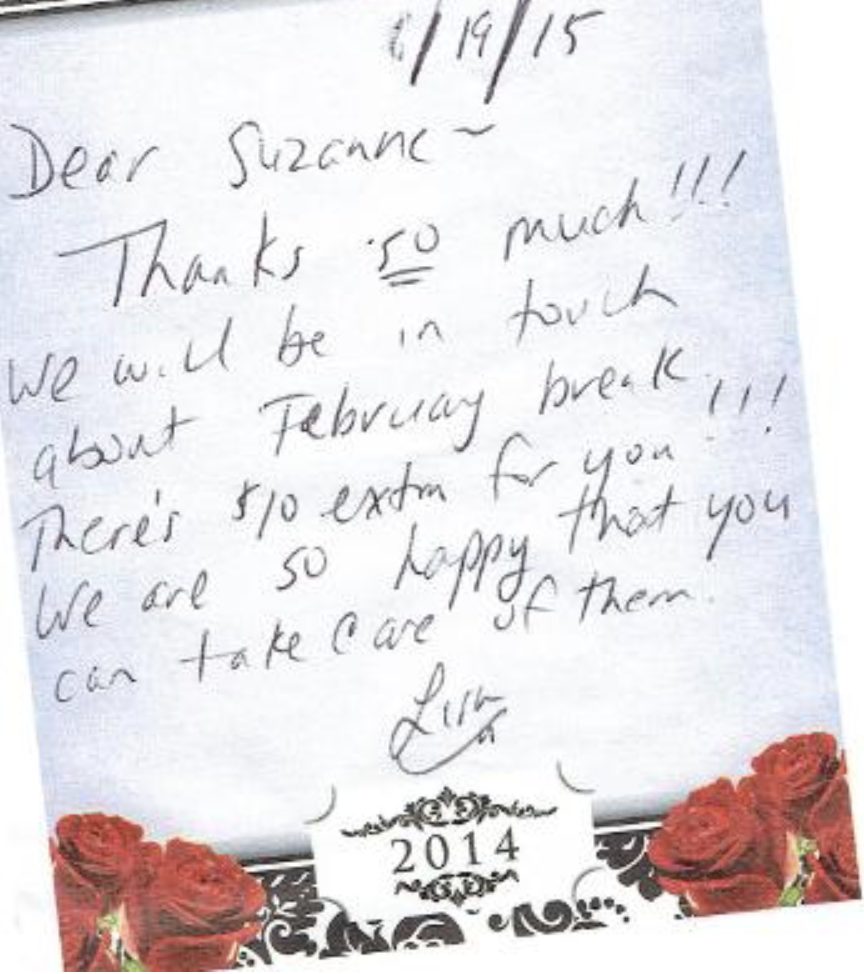 /19/15
Dear Suzanne~
Thanks so much!!!
We will be in touch
about February break.
There's $10 extra for you!!!
We are so happy that you
can take care of them.
Lisa
2014